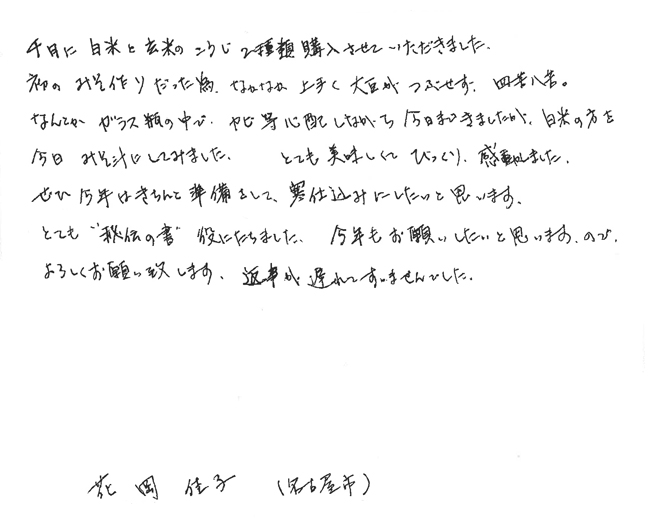 千日に 白米と玄米の こうじ 2種類 購入させていただきました。
初の みそ作りだった為、なかなか 上手く 大豆が つぶせず、四苦八苦。
なんとか ガラス瓶の中で、カビ等心配しながら 今日まできましたが、白米の方を
今日 みそ汁にしてみました。 とても美味しくて びっくり、感動しました。
ぜひ 今年はきちんと準備をして、寒仕込みにしたいと思います。
とても "秘伝の書" 役にたちました。 今年もお願いしたいと思います。ので、
よろしくお願い致します。返事が遅れてすいませんでした。
花岡 佳子 (名古屋市)